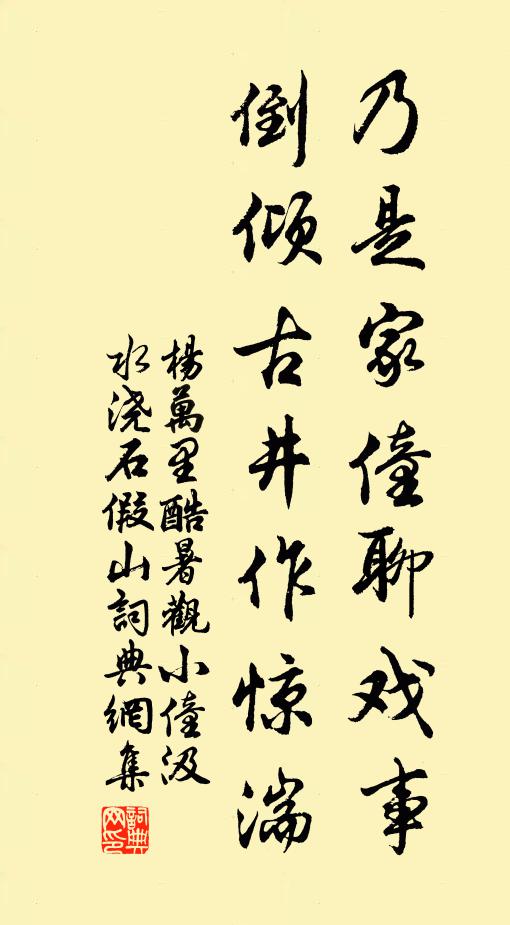 乃是家僮聊戏事
倒倾古井作惊湍
楊萬里酷暑觀小僮汲
水浇石假山詞典網集
詞典
网印